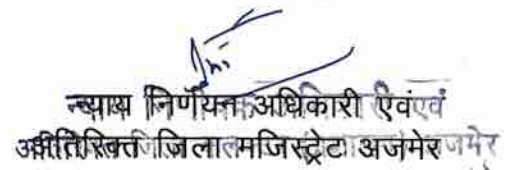 न्याय निर्णयन अधिकारी एवं
अतिरिक्त जिला मजिस्ट्रेट अजमेर